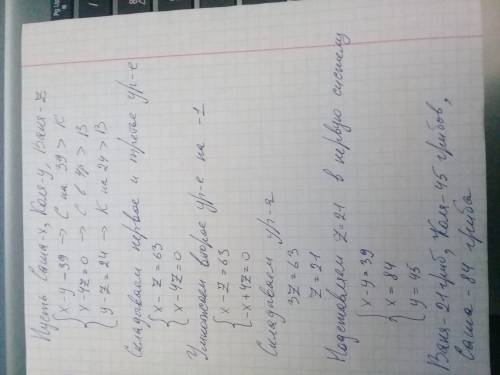 Пусть Саша-x, Коля-y, Ваня-z
x-y=39 → С на 39 > К
x-4z=0 → С в 4р > В
y-z=24 → К на 24 > В
Складываем первое и третье ур-е
x-z=63
x-4z=0
Умножаем второе ур-е на -1
x-z=63
-x+4z=0
Складываем ур-я
3z=63
z=21
Подставляем z=21 в первую систему
x-y=39
x=84
y=45
Ваня-21 гриб, Коля-45 грибов,
Саша-84 гриба